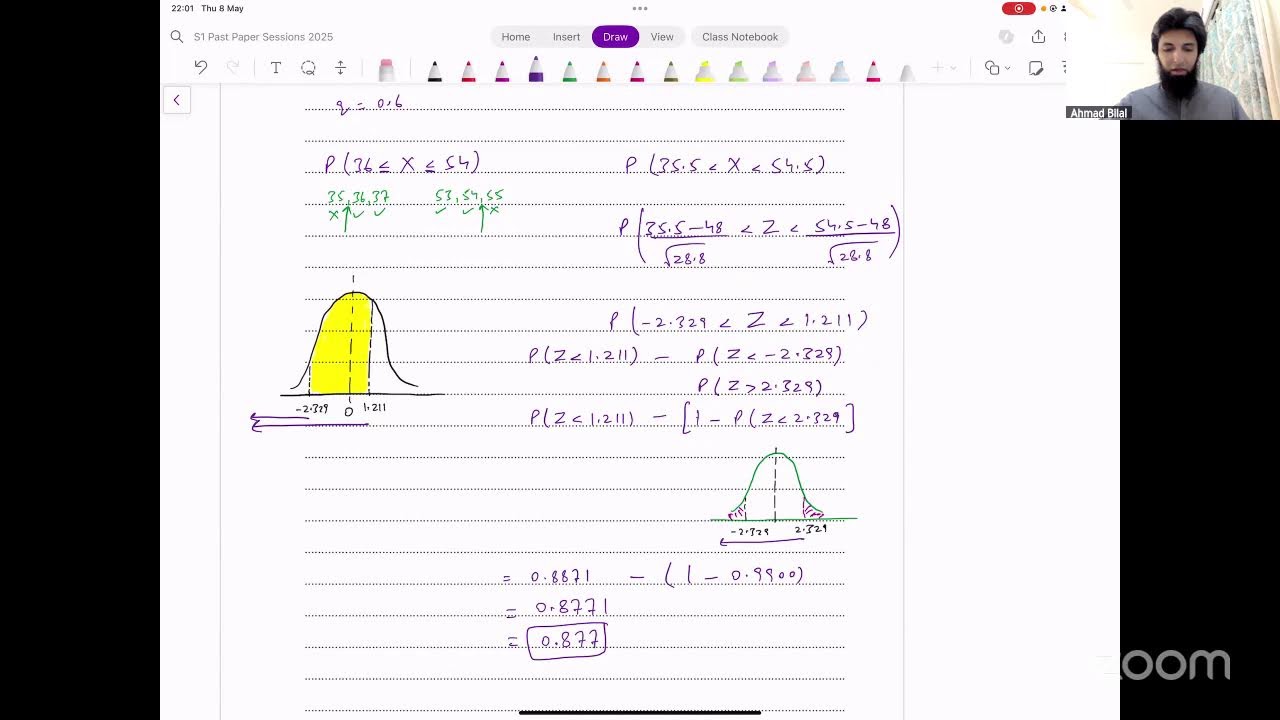 22:01 Thu 8 May
S1 Past Paper Sessions 2025
Home Insert Draw View Class Notebook
Ahmad Bilal
q = 0.6
P (36 ≤ X ≤ 54)
P (35.5 < X < 54.5)
35, 36, 37 53, 54, 55
x ✓ ✓ ✓ ✓ x
P ( (35.5 – 48)/√28.8 < Z < (54.5 – 48)/√28.8 )
P (–2.329 < Z < 1.211)
P(Z < 1.211) – P(Z < –2.329)
P(Z > 2.329)
–2.329 0 1.211
P(Z < 1.211) – [1 – P(Z < 2.329]
–2.329 2.329
= 0.8871 – (1 – 0.9900)
= 0.8771
= 0.877
zoom